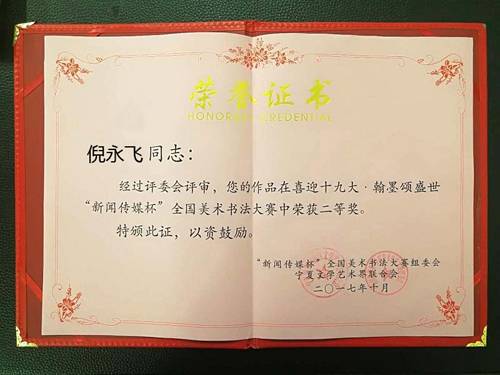 荣誉证书
HONORARY CREDENTIAL
倪永飞同志：
经过评委会评审，您的作品在喜迎十九大·翰墨颂盛世
“新闻传媒杯”全国美术书法大赛中荣获二等奖。
特颁此证，以资鼓励。
“新闻传媒杯”全国美术书法大赛组委会
宁夏文学艺术界联合会
二〇一七年十月